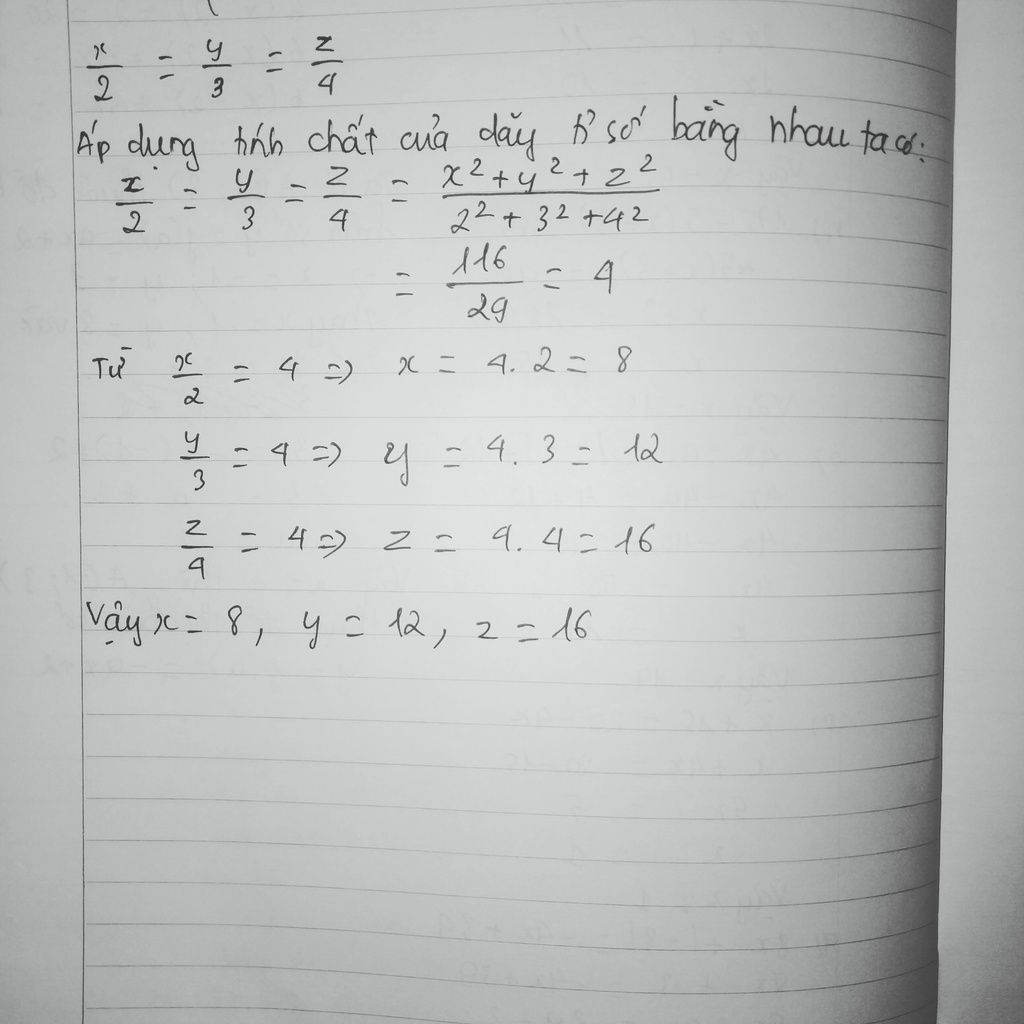 x/2 = y/3 = z/4
Áp dụng tính chất của dãy tỉ số bằng nhau ta có:
x/2 = y/3 = z/4 = (x² + y² + z²)/(2² + 3² + 4²)
= 116/29 = 4
Từ x/2 = 4 => x = 4.2 = 8
y/3 = 4 => y = 4.3 = 12
z/4 = 4 => z = 4.4 = 16
Vậy x = 8, y = 12, z = 16